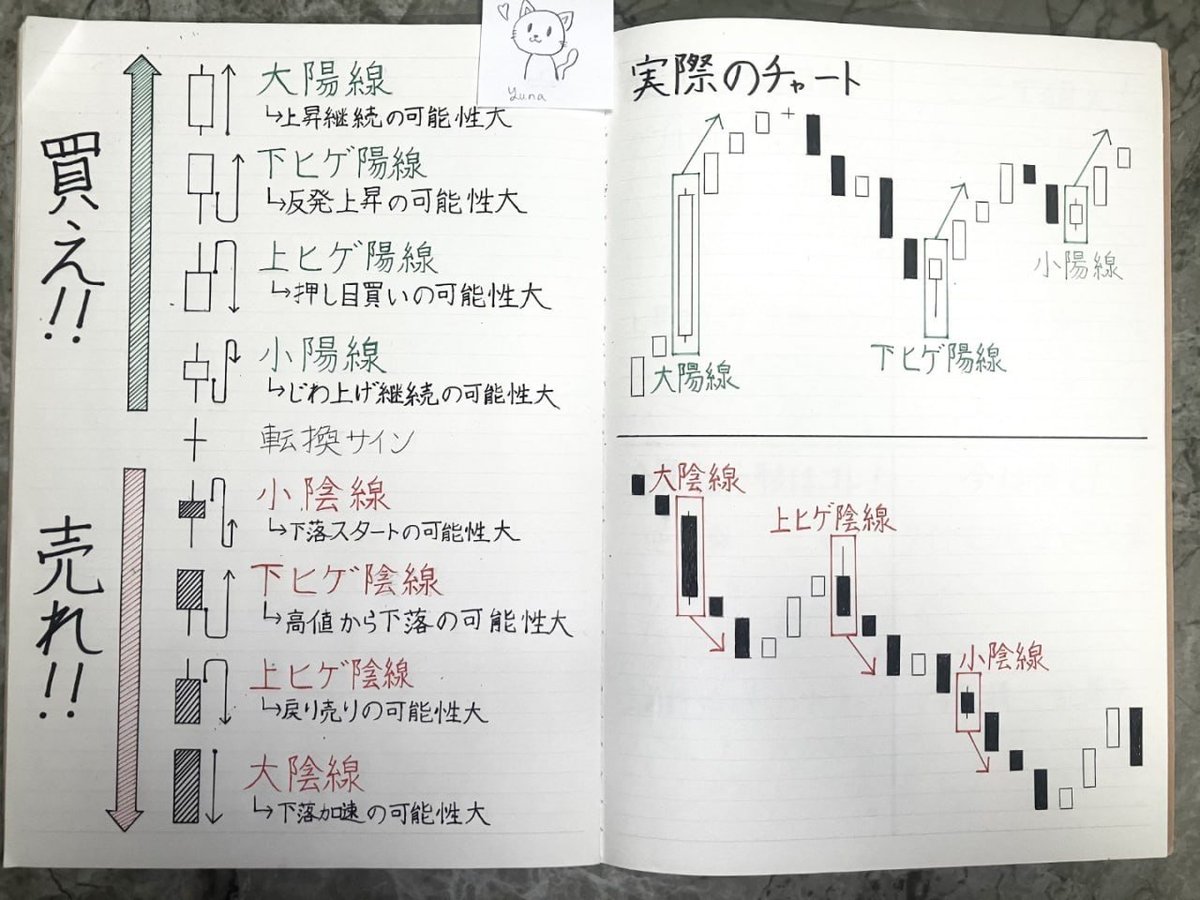 買え!!
大陽線
↳上昇継続の可能性大
下ヒゲ陽線
↳反発上昇の可能性大
上ヒゲ陽線
↳押し目買いの可能性大
小陽線
↳じわ上げ継続の可能性大
転換サイン
売れ!!
小陰線
↳下落スタートの可能性大
下ヒゲ陰線
↳高値から下落の可能性大
上ヒゲ陰線
↳戻り売りの可能性大
大陰線
↳下落加速の可能性大
Yuna
実際のチャート
大陽線
下ヒゲ陽線
小陽線
大陰線
上ヒゲ陰線
小陰線